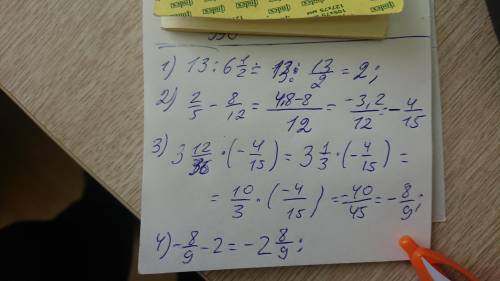 1) 13 : 6 1/2 = 13 : 13/2 = 2;
2) 2/5 - 8/12 = 4,8-8/12 = -3,2/12 = -4/15
3) 3 12/36 · (-4/15) = 3 1/3 · (-4/15) =
= 10/3 · (-4/15) = -40/45 = -8/9;
4) -8/9 - 2 = -2 8/9;